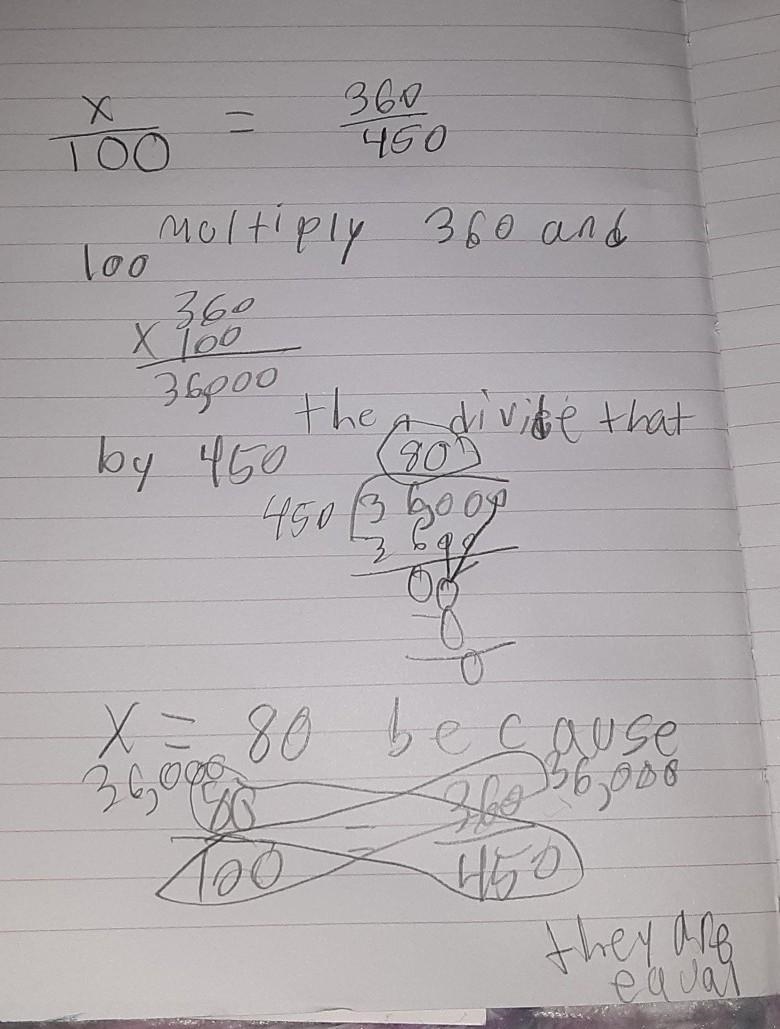 x/100 = 360/450
moltiply 360 and
100
360
x 100
36,000
the divide that
by 450
80
450 36000
3600
00
-0
0
X = 80 because
36,000 36,000
80/100 = 360/450
they are
equal